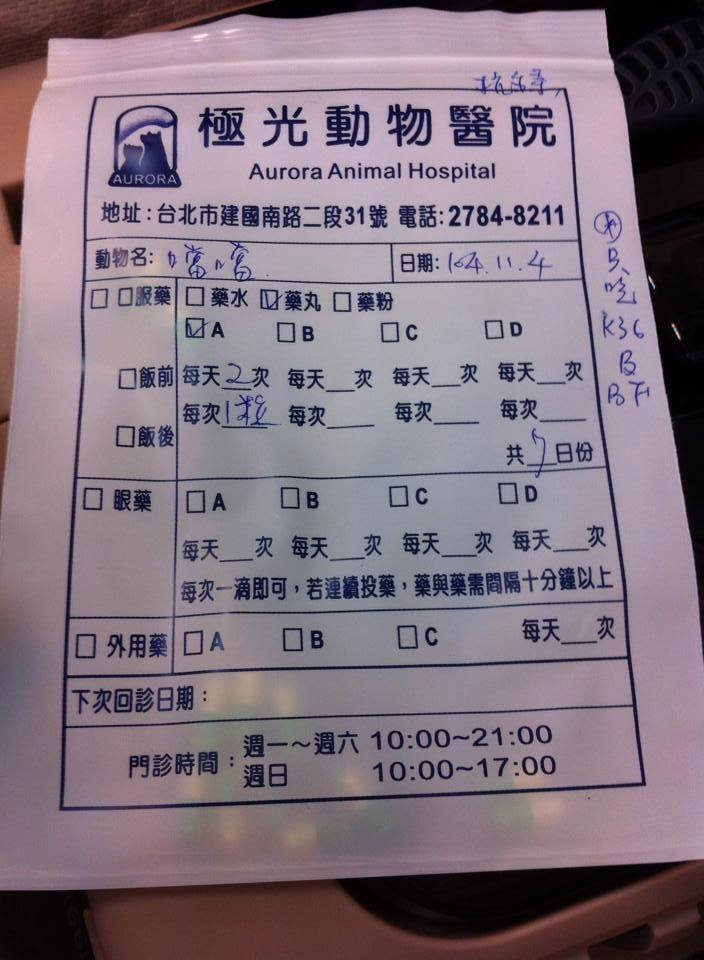 AURORA
極光動物醫院
Aurora Animal Hospital
地址：台北市建國南路二段31號 電話：2784-8211
動物名：噹噹 日期：104.11.4
□ 口服藥 □藥水 ☑藥丸 □藥粉
☑A □B □C □D
□飯前 每天2次 每天__次 每天__次 每天__次
每次1粒 每次___ 每次___ 每次___
□飯後
共7日份
□ 眼藥 □A □B □C □D
每天__次 每天__次 每天__次 每天__次
每次一滴即可，若連續投藥，藥與藥需間隔十分鐘以上
□ 外用藥 □A □B □C 每天__次
下次回診日期：
門診時間：週一～週六 10:00~21:00
週日 10:00~17:00
只
吃
K36
B